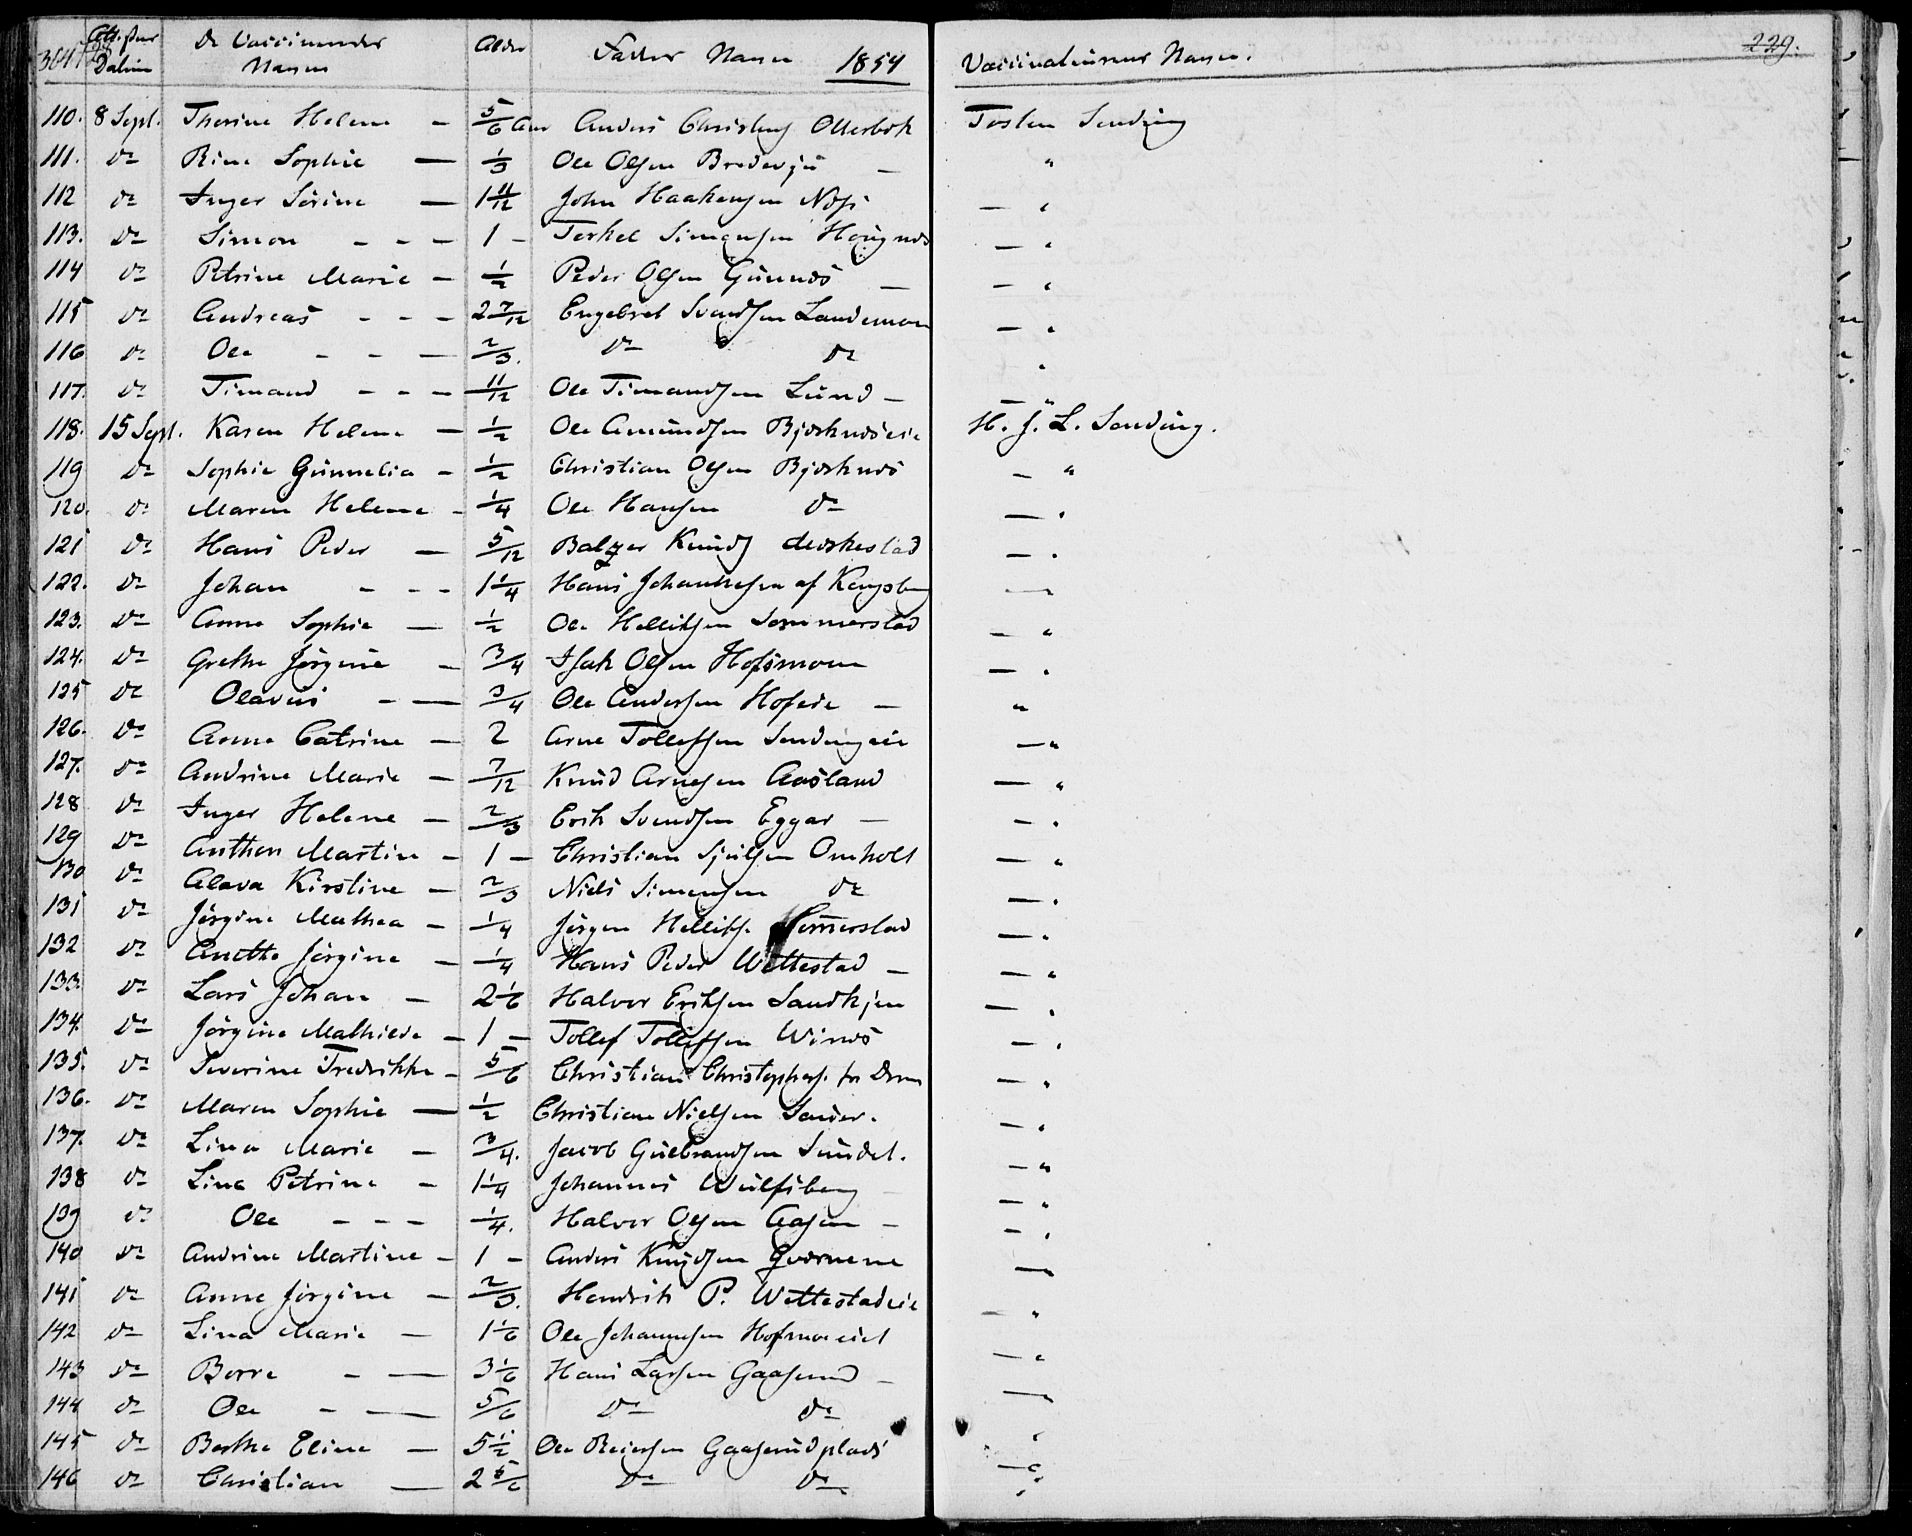 De Vaccineredes Navne Alder Fadder Navne 1854 Vaccinateurenes Navne. 229.
110. 8 Sept. Therine Helene — 5/6 Aar Anders Christens Otterbek Tosten Sending
111. do Rine Sophie — 1/3 Ole Olsen — "
112 do Inger Sørine — 1 11/12 John Haakensen Næss — "
113. do Simon - - - 1 - Torkel Simensen — "
114 do Petrine Marie — 1/2 Peder Olsen Gunnæs — — "
115 do Andreas - - - 2 7/12 Engebret Svendsen Landemoen — "
116 do Ole - - — 2/3. do do "
117. do Timand - - - 11/12 Ole Timandsen Lund — — "
118. 15 Sept. Karen Helene — 1/2 Ole Amundsen Bjørknæseie H. J. L. Sending.
119 do Sophie Gunnelia - 1/2 Christian Olsen Bjørknæs — "
120. do Maren Helene - 1/4 Ole Hansen do — "
121 do Hans Peder — 5/12 Balzer Knuds — "
122. do Johan - - - 1 1/4 Hans Johannesen af Kongsberg —
123. do Anne Sophie — 1/2 Ole Helliksen Sommerstad — "
124. do Grethe Jørgine - 3/4 Isak Olsen Hofsmoen — "
125 do Olavus - — 3/4 Ole Andersen Hofeie — "
126. do Anne Catrine — 2 Arne Tollefsen Sendingeie — "
127. do Andrine Marie — 7/12 Knud Arnesen Aasland — "
128 do Inger Helene — 2/3 Erik Svendsen Eggar — — "
129 do Anthon Martin — 1 — Christian Sjulsen Omholt — "
130 do Alava Kirstine — 2/3 Niels Simensen do — "
131 do Jørgine Mathea — 1/4 Jørgen Helliks. Somerstad — "
132 do Anette Jørgine — 1/4 Hans Peder Wettestad — — "
133. do Lars Johan — 2 1/6 Halvor Eriksen Sandkjen — "
134. do Jørgine Mathilde — 1 — Tollef Tollefsen Winæs — "
135. do Severine Fredrikke — 5/6 Christian Christophers. — "
136. do Maren Sophie — 1/2 Christian Nielsen — "
137. do Lina Marie — 3/4. Jacob Gulbrandsen Sundet. — "
138 do Line Petrine — 1 1/4 Johannes Wulfsberg — "
139 do Ole - - - 1/4. Halvor Olsen Aasen — — "
140 do Andrine Martine — 1 — Anders Knudsen Qværnene —
141 do Anne Jørgine — 2/3. Hendrik P. Wettestadeie — "
142 do Lina Marie — 1 1/6 Ole Johannesen Hofsmoeiet — "
143 do Borre - — 3 1/6 Hans Larsen Gaaserud — —
144 do Ole - — 5/6 do do "
145 do Berthe Eline — 5 1/2 Ole Reiersen Gaaserudplads — "
146 do Christian — 2 5/6 do do "